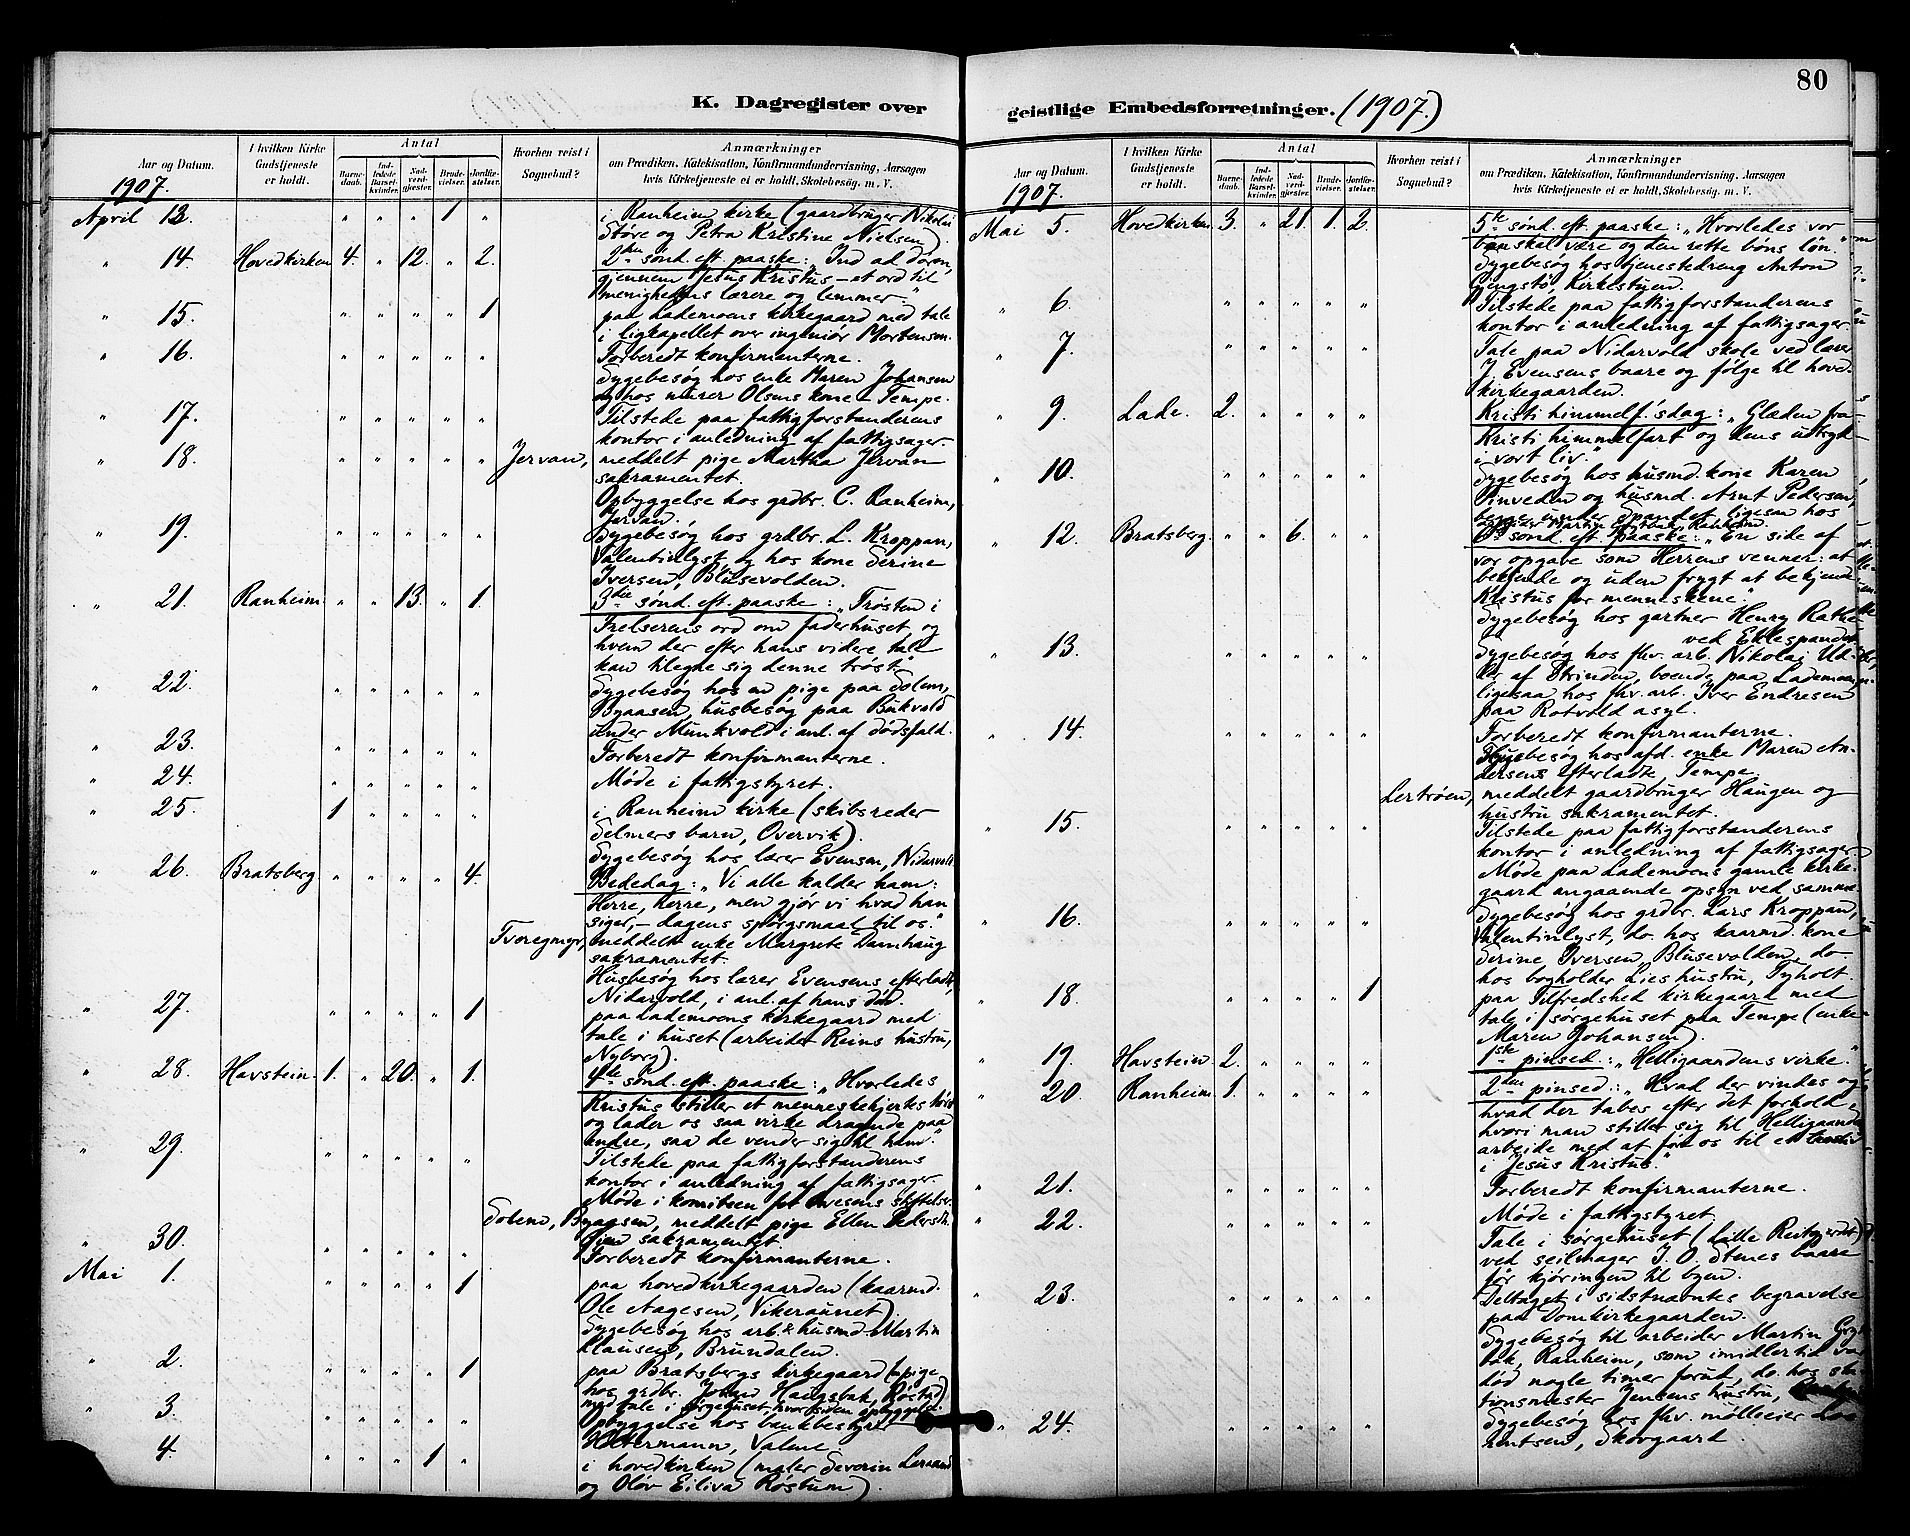 80
K. Dagregister over
geistlige Embedsforretninger. (1907.)
Aar og Datum.
I hvilken Kirke Gudstjeneste er holdt.
Antal
Barnedaab.
Indledede Barselkvinder.
Nadverdgjester.
Brudevielser.
Jordfæstelser.
Hvorhen reist i Sognebud?
Anmærkninger
om Prædiken, Katekisation, Konfirmandundervisning, Aarsagen
hvis Kirketjeneste ei er holdt, Skolebesøg. m. V.
1907.
April 13. " " " 1 " i Ranheim kirke (gaardbruger Nikolai
Støre og Petra Kristine Nielsen).
" 14. Hovedkirken 4. " 12. " 2. 2den sønd. eft. paaske: „Ind ad døren,
gjennem Jesus Kristus – et ord til
menighedens lærere og lemmer."
" 15. " " " " 1 paa Lademoens kirkegaard med tale
i ligkapellet over ingeniør Mortensen.
" 16. " " " " " Forberedt konfirmanterne.
Sygebesøg hos enke Maren Johansen
og hos murer Olsens kone – Tempe.
" 17. " " " " " Tilstede paa fattigforstanderens
kontor i anledning af fattigsager.
" 18. " " " " " Jervan, meddelt pige Martha Jervan
sakramentet.
Opbyggelse hos grdbr. C. Ranheim,
Jervan.
" 19. " " " " " Sygebesøg hos grdbr. L. Kroppan,
Valentinlyst, og hos kone Serine
Iversen, Blusevolden.
" 21. Ranheim. " " 13. " 1. 3die sønd. eft. paaske: „Trøsten i
Frelserens ord om faderhuset og
hvem der efter hans videre tale
kan tilegne sig denne trøst."
" 22. " " " " " Sygebesøg hos en pige paa Solem,
Byaasen, husbesøg paa Bukvold
under Munkvold i anl. af dødsfald.
" 23. " " " " " Forberedt konfirmanterne.
" 24. " " " " " Møde i fattigstyret.
" 25. 1 " " " " i Ranheim kirke (skibsreder
Selmers barn, Overvik).
Sygebesøg hos lærer Evensen, Nidarvold
" 26. Bratsberg. " " " " 4. Bededag: „Vi alle kalder ham:
Herre, herre, men gjør vi hvad han
siger, – dagens spørgsmaal til os."
Tvoregmyr, meddelt enke Margrete Damhaug
sakramentet.
Husbesøg hos lærer Evensens efterladte,
Nidarvold, i anl. af hans død.
" 27. " " " " 1 paa Lademoens kirkegaard med
tale i huset (arbeider Reins hustru,
Nyborg).
" 28. Havstein. 1. " 20. " 1. 4de sønd. eft. paaske: „Hvorledes
Kristus stiller et menneskehjertes tørst
og lader os saa virke dragende paa
andre, saa de vender sig til ham."
" 29. " " " " " Tilstede paa fattigforstanderens
kontor i anledning af fattigsager.
Møde i komiteen for Owesens stiftelser.
Solem, Byaasen, meddelt pige Ellen Pedersdt.
sakramentet.
" 30. " " " " " Forberedt konfirmanterne.
Mai 1. " " " " 1 paa hovedkirkegaarden (kaarmd.
Ole Aagesen, Vikeraunet).
Sygebesøg hos arb. & husmd. Martin
Klausen, Brundalen.
" 2. " " " " 1 paa Bratsbergs kirkegaard (en pige
hos grdbr. Johan Haugsbak, Røstad)
med tale i sørgehuset, hvor siden opbyggelse.
" 3. " " " " " Opbyggelse hos bankbestyrer
Haltermann, Valene.
" 4. " " " 1 " i hovedkirken (maler Severin
og Olöv Eiliva Røstum).
Aar og Datum.
I hvilken Kirke Gudstjeneste er holdt.
Antal
Barnedaab.
Indledede Barselkvinder.
Nadverdgjester.
Brudevielser.
Jordfæstelser.
Hvorhen reist i Sognebud?
Anmærkninger
om Prædiken, Katekisation, Konfirmandundervisning, Aarsagen
hvis Kirketjeneste ei er holdt, Skolebesøg. m. V.
1907.
Mai 5. Hovedkirken 3. " 21. 1. 2. 5te sønd. eft. paaske: „Hvorledes vor
bøn skal være og den rette bøns løn."
Sygebesøg hos tjenestedreng Anton
Gjengstø, Kirkestuen.
" 6. " " " " " Tilstede paa fattigforstanderens
kontor i anledning af fattigsager.
" 7. " " " " " Tale paa Nidarvold skole ved lærer
J. Evensens baare og følge til hoved-
kirkegaarden.
" 9. Lade. 2. " " " " Kristi himmelf.'sdag: „Glæden fra
Kristi himmelfart og dens udtryk
i vort liv."
" 10. " " " " " Sygebesøg hos husmd. kone Karen
Vinveden og husmd. Arnt Pedersen,
berge under Spandet, ligesom hos
arbeider Martin Grytbak, Ranheim.
" 12. Bratsberg. " " 6. " " 6te sønd. eft. paaske: „En side af
vor opgave som Herrens venner: at
bekjende og uden frygt at bekjende
Kristus for menneskene."
Sygebesøg hos gartner Henry Rathe
ved Eklespandet
" 13. " " " " " Sygebesøg hos fhv. arb. Nikolai
af Strinden, boende paa Lademoen,
ligesaa hos fhv. arb. Iver Endresen
paa Rotvold asyl.
" 14. " " " " " Forberedt konfirmanterne.
Husbesøg hos afd. enke Maren An-
dersens efterladte, Tempe.
Lertrøen, meddelt gaardbruger Haugen og
hustru sakramentet.
" 15. " " " " " Tilstede paa fattigforstanderens
kontor i anledning af fattigsager.
Møde paa Lademoens gamle kirke-
gaard angaaende opsyn ved samme.
" 16. " " " " " Sygebesøg hos grdbr. Lars Kroppan,
Valentinlyst, do. hos kaarmd. kone
Serine Iversen, Blusevolden, do.
hos bogholder Lies hustru, Tyholt.
" 18. " " " " 1 paa Tilfredshed kirkegaard med
tale i sørgehuset paa Tempe (enke
Maren Johansen).
" 19. Havstein. 2. " " " " 1ste pinsed.: „Helligaandens virke."
" 20. Ranheim. 1. " " " " 2den pinsed.: „Hvad der vindes og
hvad der tabes efter det forhold,
hvori man stiller sig til Helligaandens
arbeide med at føre os til et
i Jesus Kristus."
" 21. " " " " " Forberedt konfirmanterne.
" 22. " " " " " Møde i fattigstyret.
Tale i sørgehuset (Lille Reitgjerdet)
ved seilmager J. O. Stenes baare
før kjøringen til byen.
" 23. " " " " " Deltaget i sidstnævntes begravelse
paa Domkirkegaarden.
Sygebesøg til arbeider Martin Gryt-
bak, Ranheim, som imidlertid var
død nogle timer forut, do. hos sta-
tionsmester Jensens hustru,
" 24. " " " " " Sygebesøg hos fhv. mølleeier Lau-
rentsen, Skovgaard.